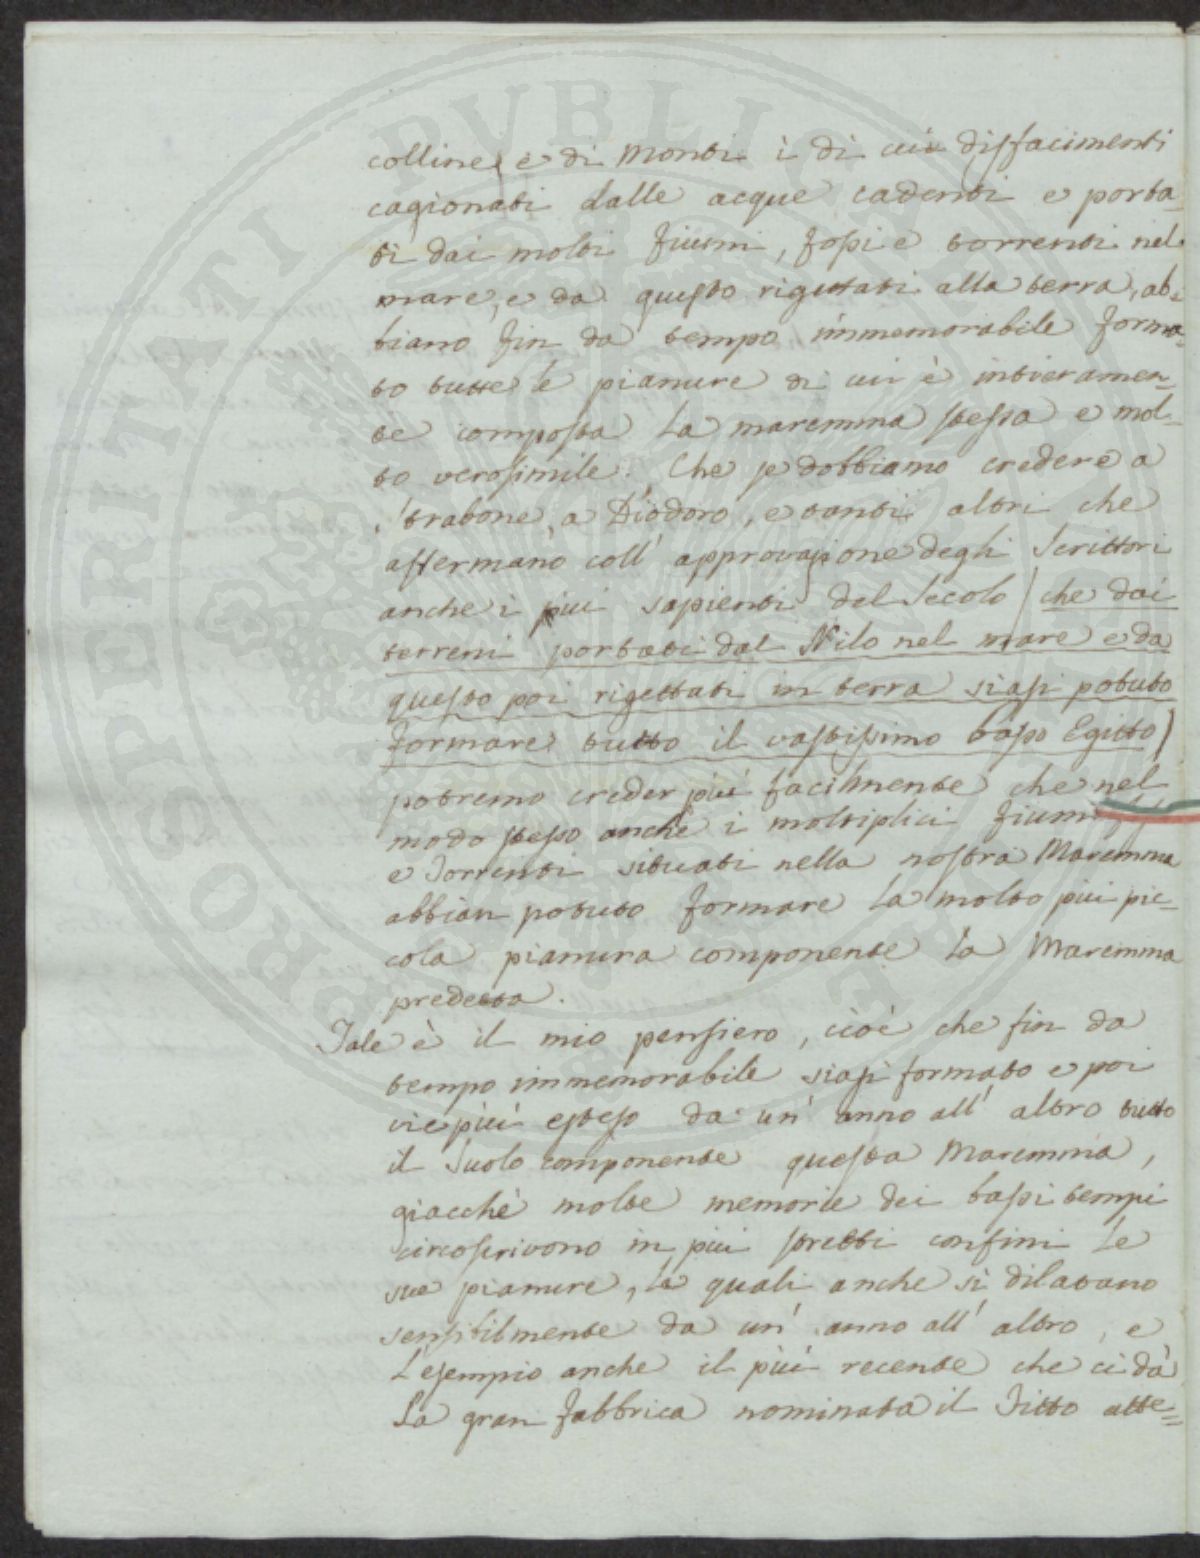 colline e di Monti i di cui disfacimenti
cagionati dalle acque cadenti e porta-
ti dai molti fiumi, fossi e torrenti nel
mare, e da questo rigettati alla terra, ab-
biano fin da tempo immemorabile forma-
to tutte le pianure di cui è intieramen-
te composta la maremma stessa e mol-
to verosimile. Che se dobbiamo credere a
Strabone, a Diodoro, e tanti altri che
affermano coll' approvazione degli Scrittori
anche i più sapienti del Secolo / che dai
terreni portati dal Nilo nel mare e da
questo poi rigettati in terra siasi potuto
formare tutto il vastissimo basso Egitto /
potremo creder più facilmente che nel
modo stesso anche i moltiplici fiumi
e Torrenti situati nella nostra Maremma
abbian potuto formare la molto più pic-
cola pianura componente la Maremma
predetta.
Tale è il mio pensiero, cioè che fin da
tempo immemorabile siasi formato e poi
vie più esteso da un' anno all' altro tutto
il Suolo componente questa Maremma,
giacchè molte memorie dei bassi tempi
circoscrivono in più stretti confini le
sue pianure, le quali anche si dilatano
sensibilmente da un' anno all' altro, e
L'esempio anche il più recente che ci dà
La gran fabbrica nominata il Fitto atte=
PROSPERITATI PUBLICAE